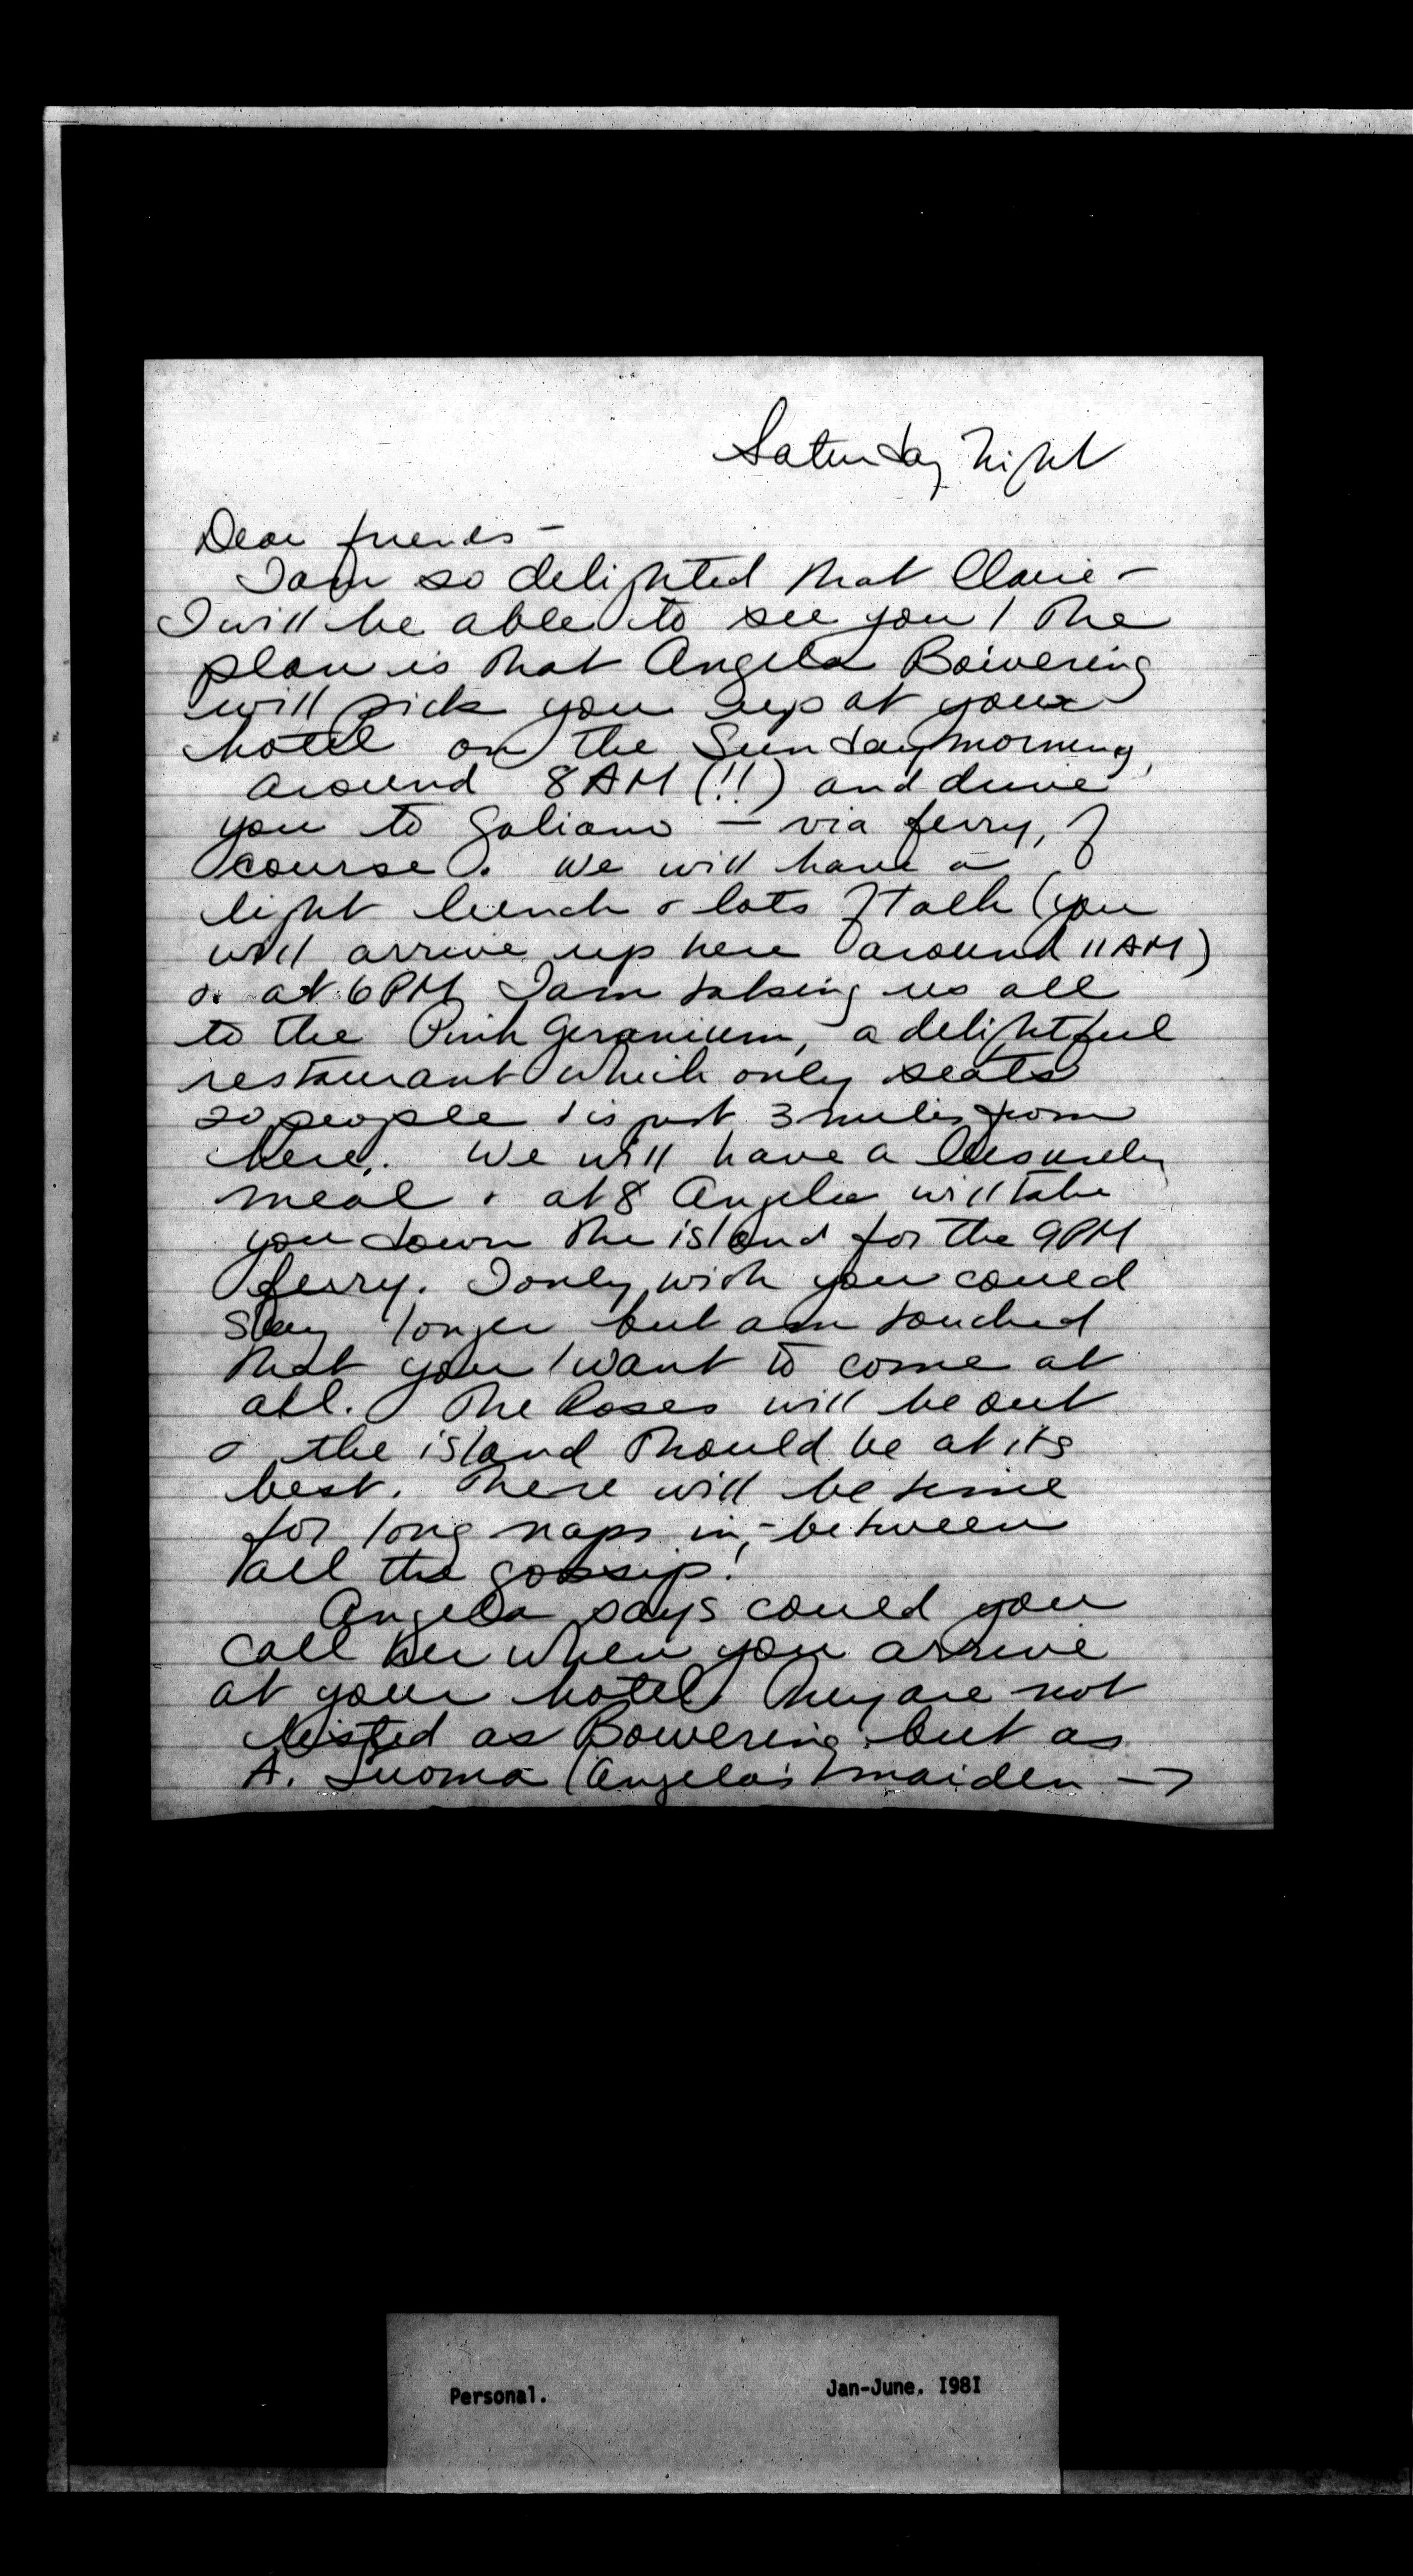 Saturday night
Dear friends –
I am so delighted that Claire –
I will be able to see you! The
plan is that Angela Bowering
will pick you up at your
hotel on the Sunday morning,
around 8 AM (!!) and drive
you to Galiano – via ferry, of
course. We will have a
light lunch & lots of talk (you
will arrive up here around 11 AM)
& at 6 PM I am taking us all
to the Pink Geranium, a delightful
restaurant which only seats
20 people & is just 3 miles from
here. We will have a leisurely
meal & at 8 Angela will take
you down the island for the 9 PM
ferry. I only wish you could
stay longer but am touched
that you want to come at
all. The Roses will be out
& the island should be at its
best. There will be time
for long naps in-between
all the gossip!
Angela says could you
call her when you arrive
at your hotel. They are not
listed as Bowering but as
A. Luoma (Angela's maiden →
Personal. Jan-June. I98I